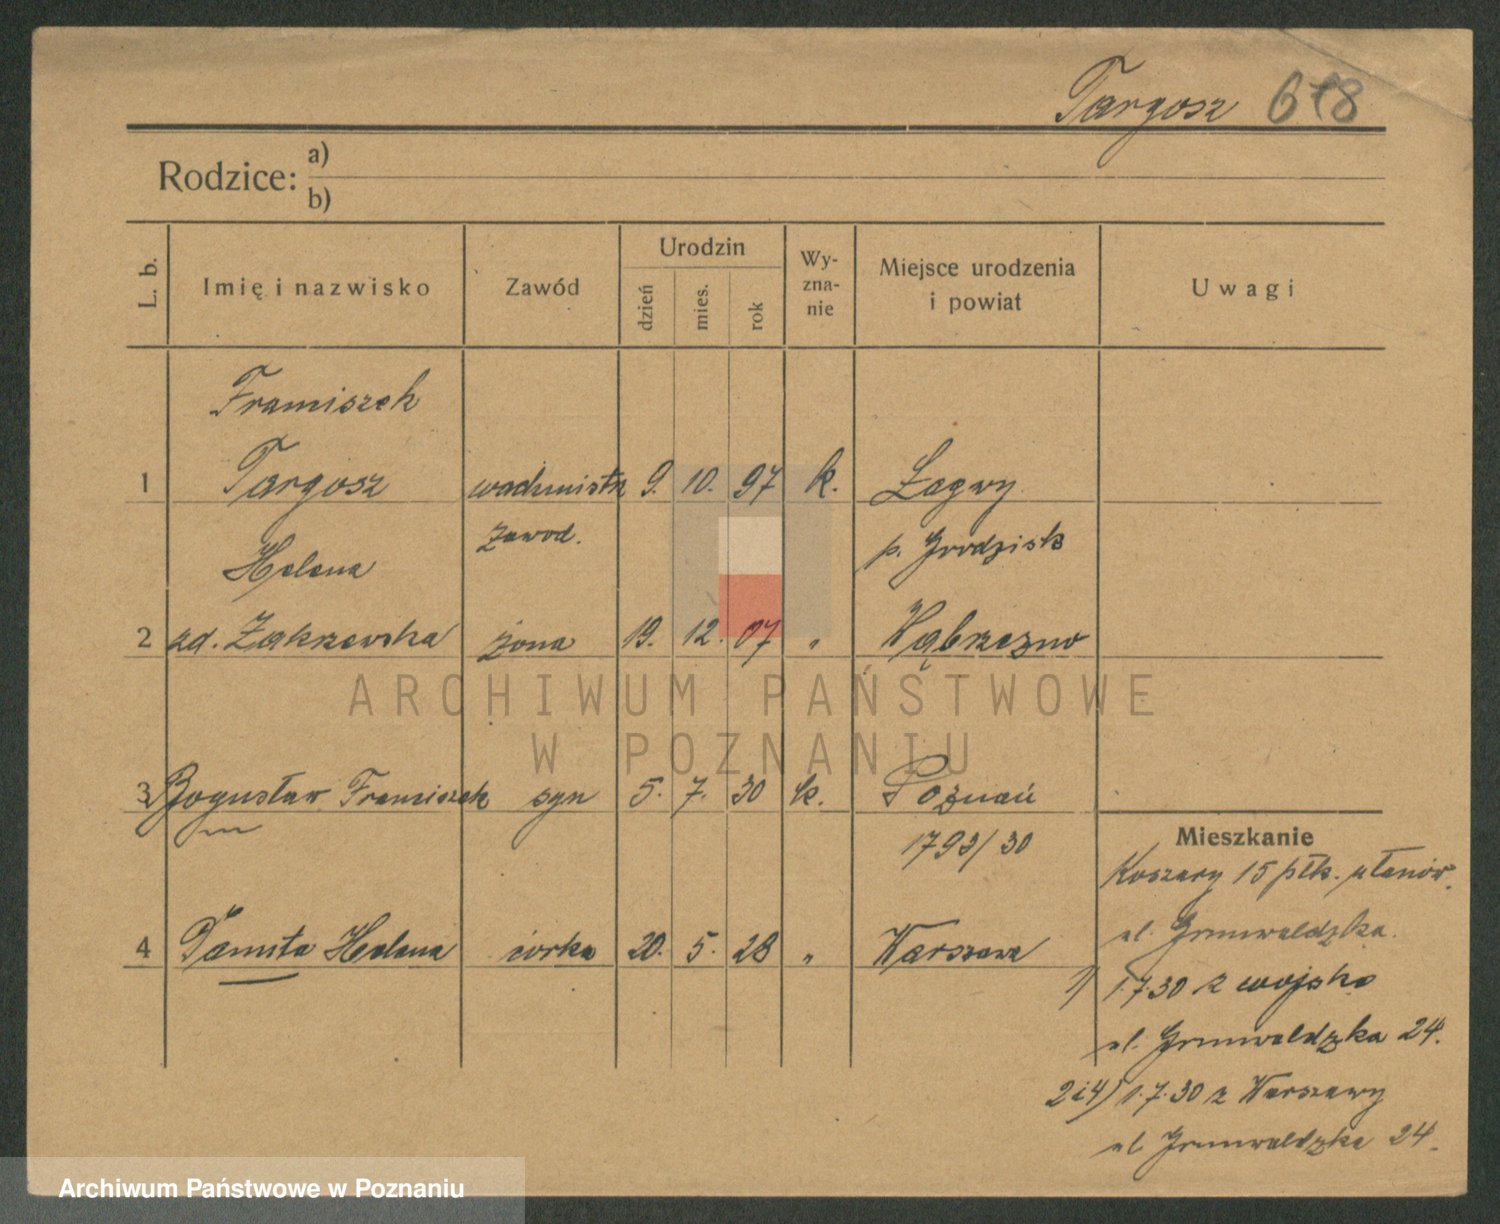 Targosz 618
Rodzice: a)
b)
L. b. Imię i nazwisko Zawód Urodzin dzień mies. rok Wy-zna-nie Miejsce urodzenia i powiat Uwagi
Franciszek
1 Targosz wachmistrz 9. 10. 97 k. Łagwy
zawod. p. Grodzisk
Helena
2 zd. Zakrzewska żona 19. 12. 07 " Wąbrzezno
ARCHIWUM PAŃSTWOWE
W POZNANIU
3 Bogusław Franciszek syn 5. 7. 30 k. Poznań
1793/30
Mieszkanie
Koszary 15 płk. ułanów.
4 Danuta Helena córka 20. 5. 28 " Warszawa
ul. Grunwaldzka.
1) 1.7.30 z wojska
ul. Grunwaldzka 24.
2i4) 1.7.30 z Warszawy
ul Grunwaldzka 24.
Archiwum Państwowe w Poznaniu